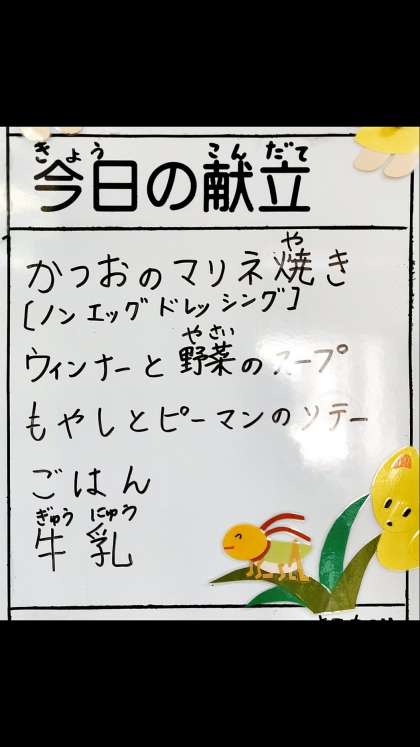 きょう こんだて
今日の献立
や
かつおのマリネ焼き
[ノンエッグドレッシング]
やさい
ウィンナーと野菜のスープ
もやしとピーマンのソテー
ごはん
ぎゅう にゅう
牛乳